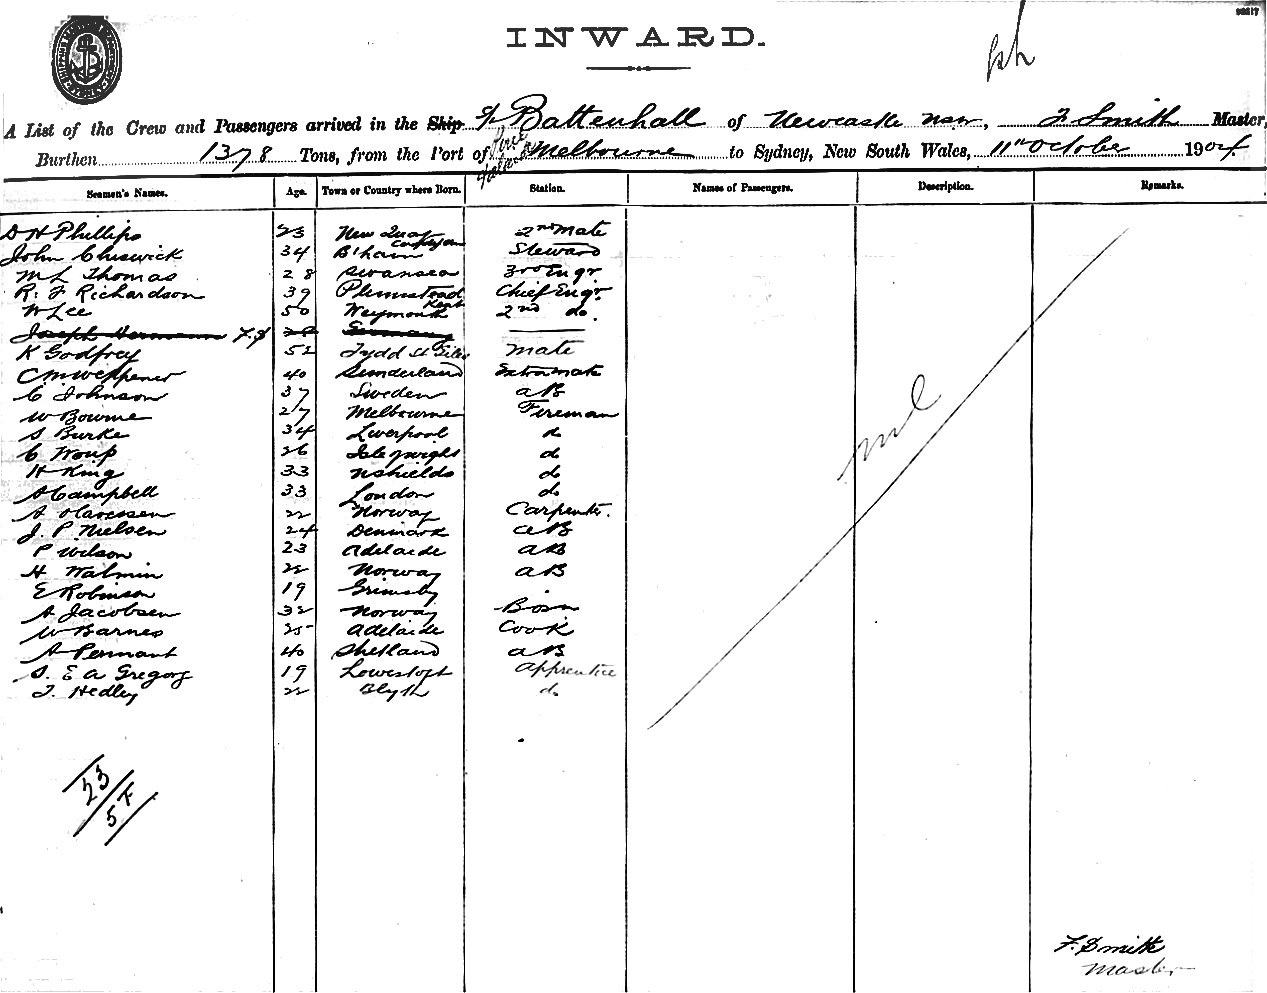 INWARD.
A List of the Crew and Passengers arrived in the Ship S/S Battenhall of Newcastle NSW, F Smith Master,
Burthen 1378 Tons, from the Port of Melbourne to Sydney, New South Wales, 11th October 1904
Seamen's Names. Age. Town or Country where Born. Station. Names of Passengers. Description. Remarks.
D H Phillips 23 New Quay 2nd Mate
John Chiswick 34 B'ham Steward
M L Thomas 28 Swansea 3rd Engr
R. F Richardson 39 Plumstead Kent Chief Engr.
W Lee 50 Weymouth 2nd do.
Joseph Hermann F.S Germany
K Godfrey 52 Tydd St Giles Mate
40 Sunderland Extra Mate
C Johnson 37 Sweden AB
W Bourne 27 Melbourne Fireman
S Burke 34 Liverpool d
C Woup 26 Isle of Wight d
H King 33 N Shields do
A Campbell 33 London do
A 22 Norway Carpenter.
J. P. Nielsen 24 Denmark AB
P Wilson 23 Adelaide AB
H Walmin 22 Norway AB
E Robinson 19 Grimsby
A Jacobsen 32 Norway Bosn
W Barnes 25 Adelaide Cook
A Pennant 40 Shetland AB
S. E A Gregory 19 Lowestoft Apprentice
T. Hedley 22 Blyth do
nil
23
57
F. Smith
Master